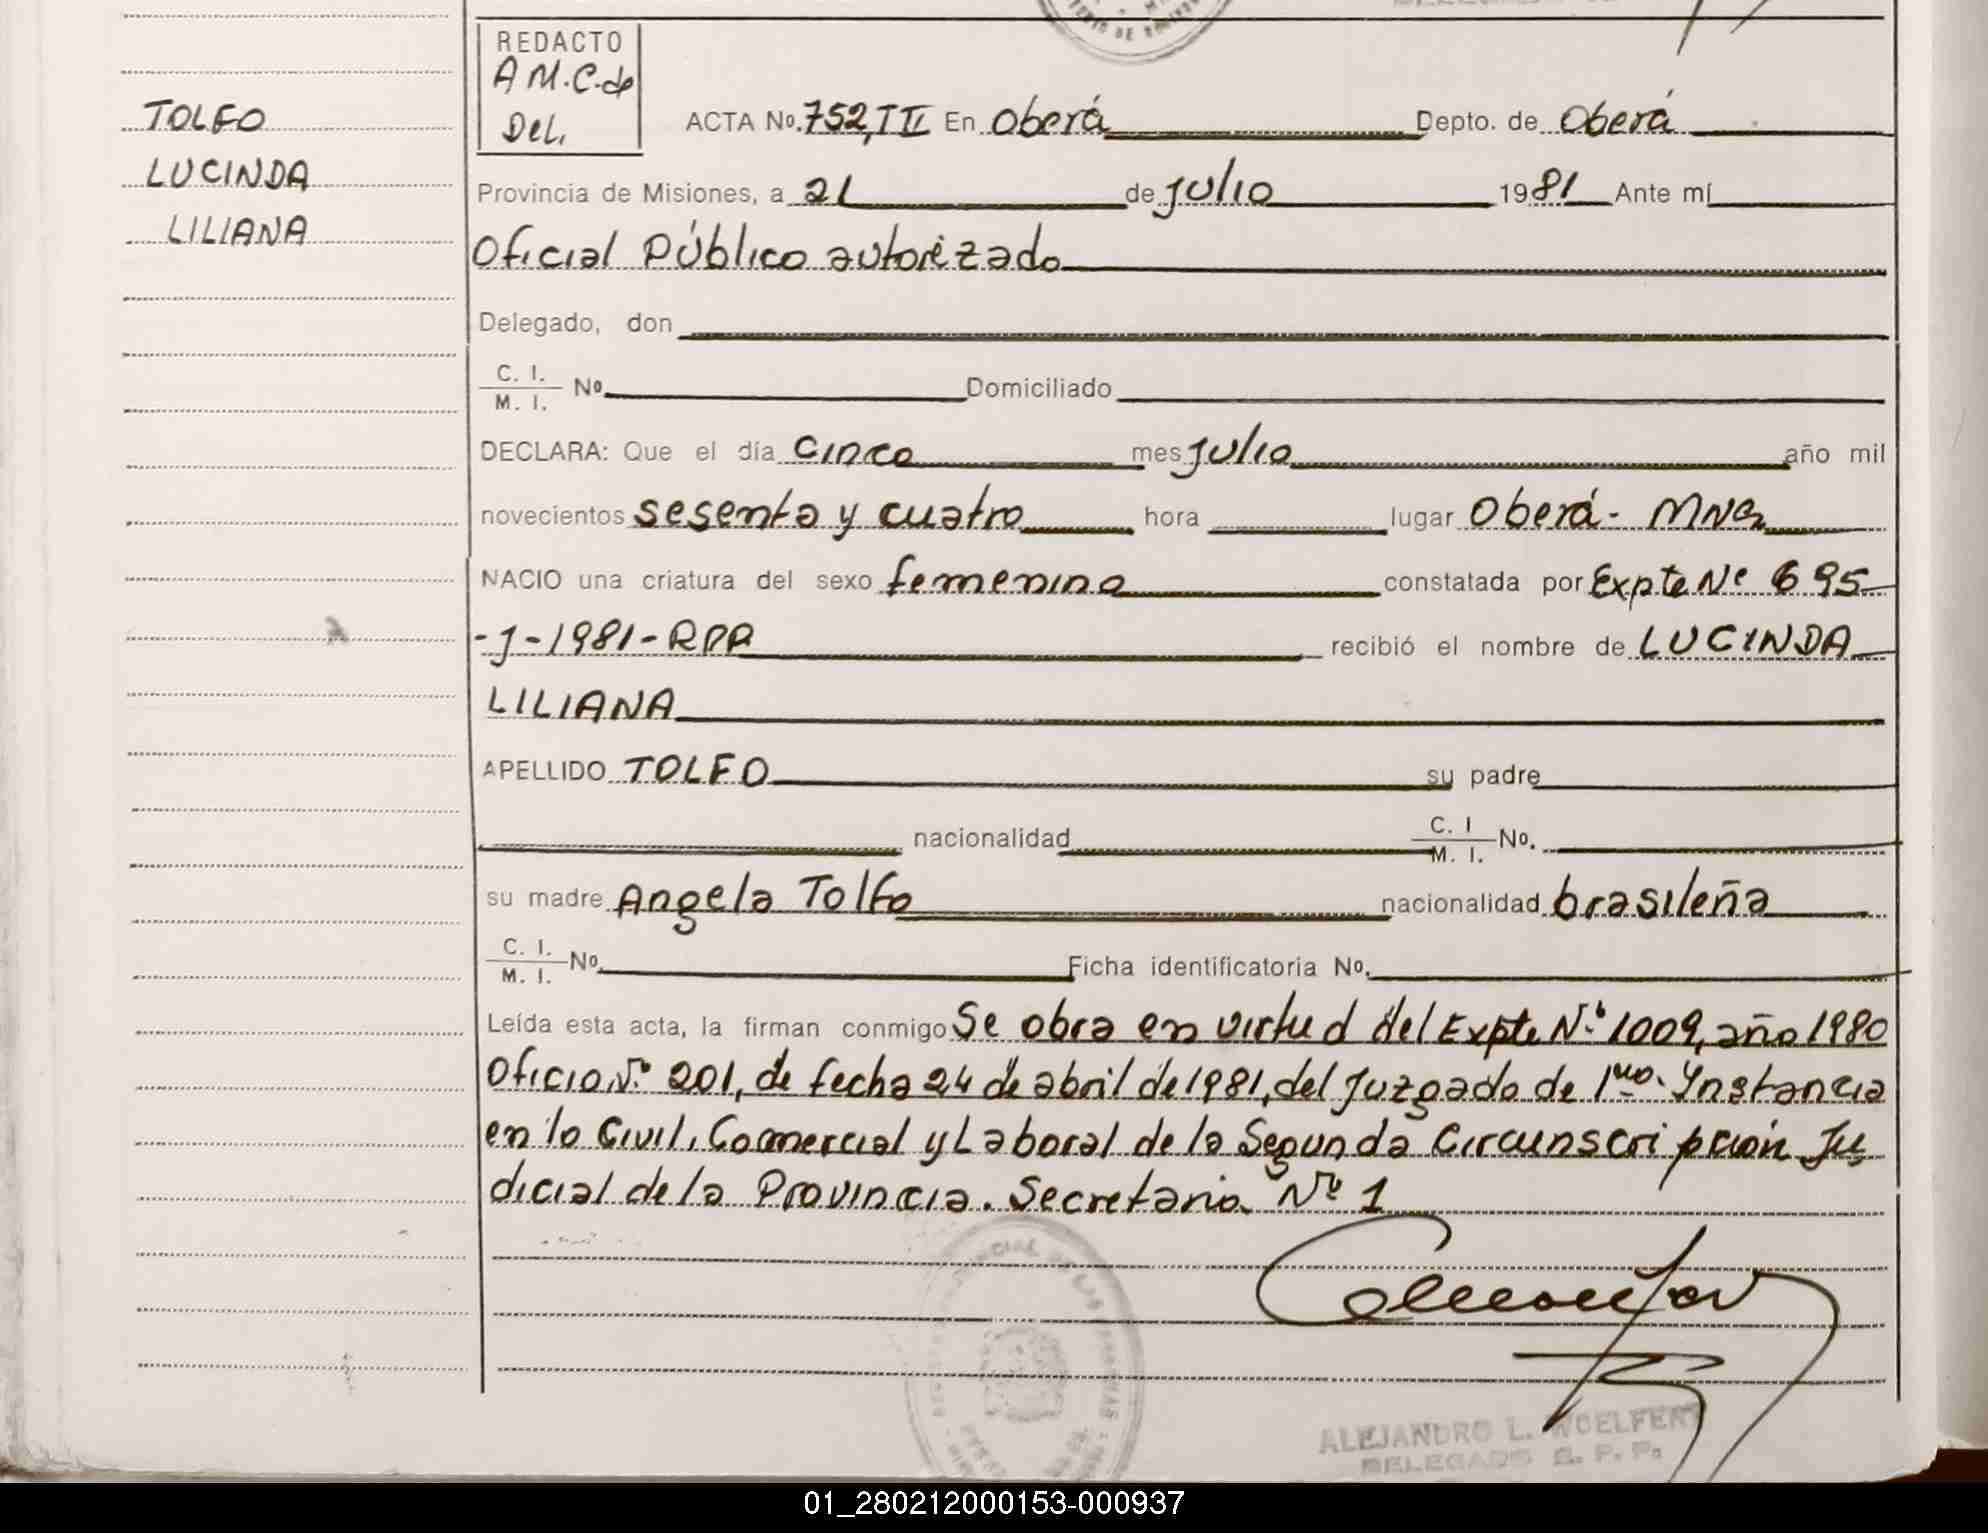 REDACTO
A M.C. de
Del.
TOLFO
LUCINDA
LILIANA
ACTA No. 752, T II En Oberá Depto. de Oberá
Provincia de Misiones, a 21 de Julio 1981 Ante mí
Oficial Público autorizado
Delegado, don
C. I.
M. I. No Domiciliado
DECLARA: Que el día cinco mes Julio año mil
novecientos sesenta y cuatro hora lugar Oberá - Mnes
NACIO una criatura del sexo femenino constatada por Expte Nº 695
-J-1981-RPP recibió el nombre de LUCINDA
LILIANA
APELLIDO TOLFO su padre
nacionalidad C. I
M. I. No.
su madre Angela Tolfo nacionalidad brasileña
C. I.
M. I. No. Ficha identificatoria No.
Leída esta acta, la firman conmigo Se obra en virtud del Expte Nº 1009, año 1980
Oficio Nº 201, de fecha 24 de abril de 1981, del Juzgado de 1ro. Ynstancia
en lo Civil, Comercial y Laboral de la Segunda Circunscripción Ju
dicial de la Provincia. Secretaria Nº 1
ALEJANDRO L. WOELFERT
DELEGADO R. P. P.
01_280212000153-000937